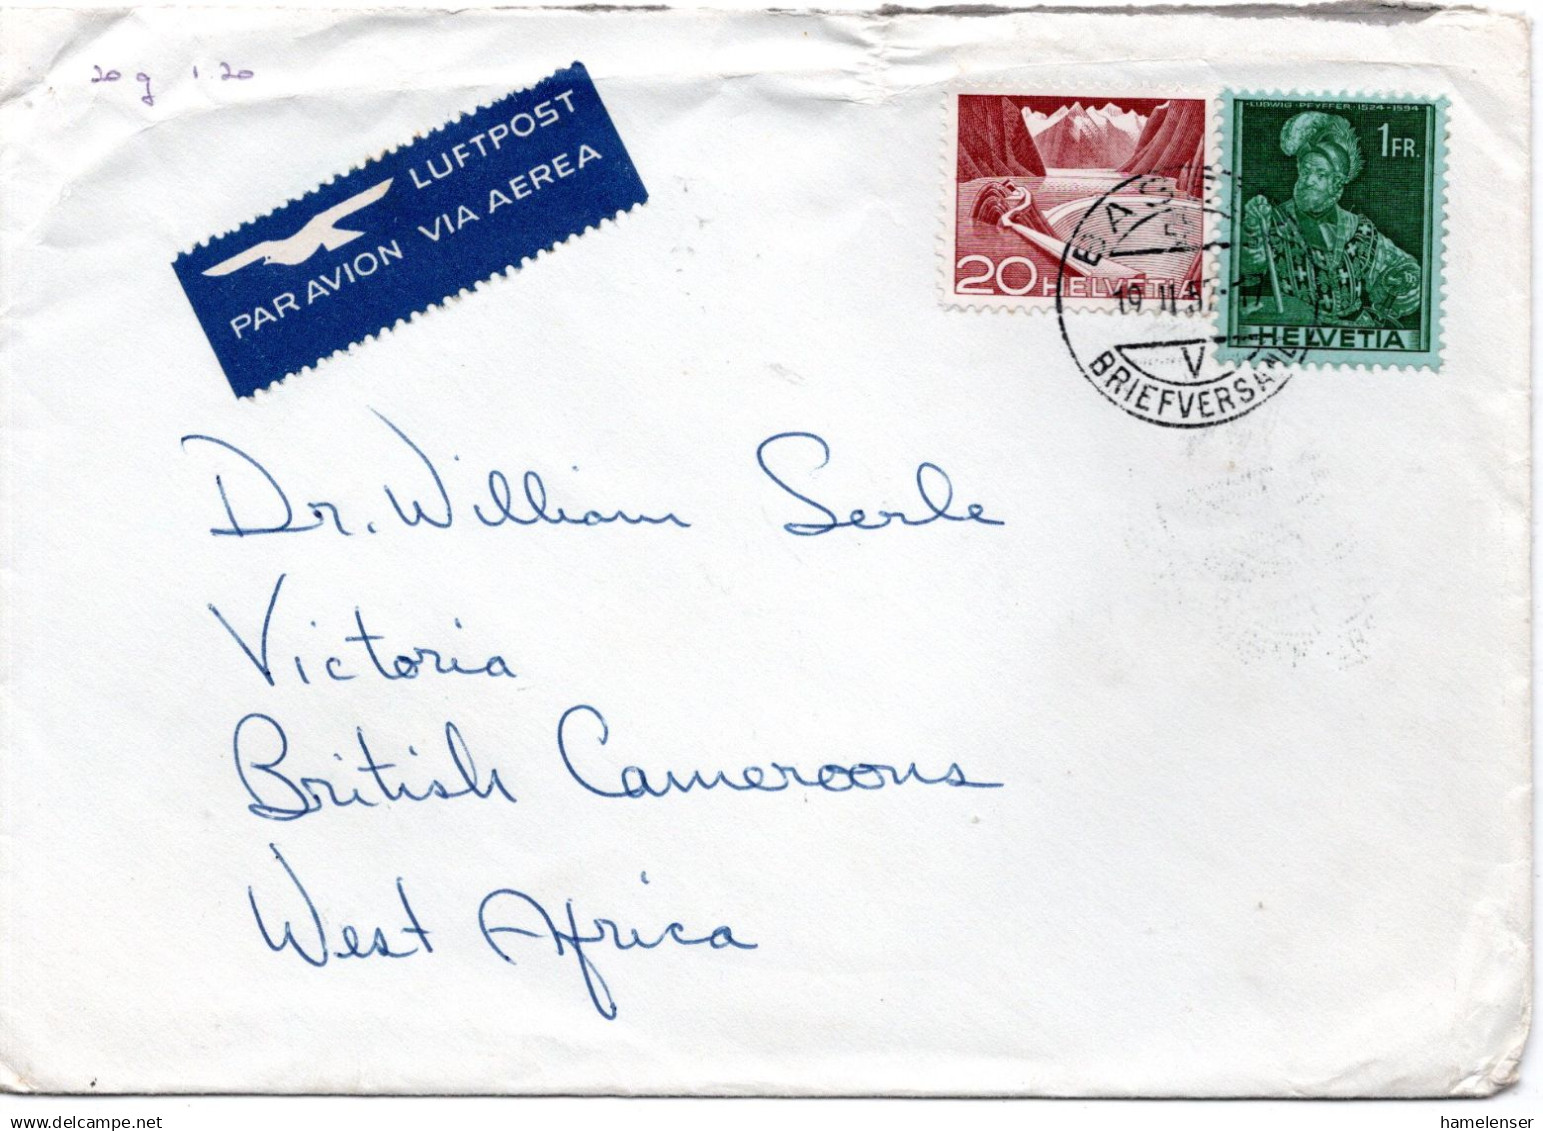 20 g 1.20
LUFTPOST
PAR AVION VIA AEREA
LUDWIG · PFYFFER · 1524-1594
1 FR.
HELVETIA
20 HELVETIA
BASEL
19. II. 57-17
V
BRIEFVERSAND
Dr. William Serle
Victoria
British Cameroons
West Africa
hamelenser